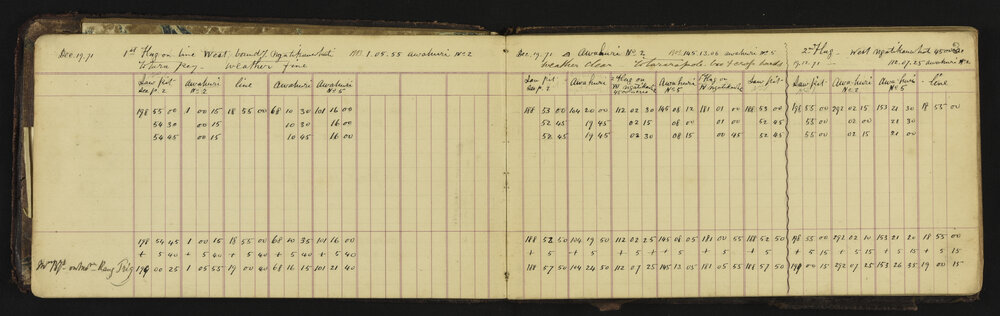 Dec. 19. 71 1st Flag on line West bound/ Ngatikauwhat 1.05.55 Awahuri No 2
Weather fine
Saw pit Awahuri line Awahuri Awahuri
Sec p. 2 No 2 No 5
198 55 00 1 00 15 18 55 00 68 10 30 101 16 00
54 30 00 15 10 30 16 00
54 45 00 15 10 45 16 00
198 54 45 1 00 15 18 55 00 68 10 35 101 16 00
+ 5 40 + 5 40 + 5 40 + 5 40 + 5 40
199 00 25 1 05 55 19 00 40 68 16 15 101 21 40
Dec. 19. 71 Awahuri No 2 145.13.05 Awahuri No 5
Weather clear
Saw pit Awahuri 2nd Flag on Awahuri 1st Flag on Saw pit
Sec p. 2 W Ngatikauwhat No 5 W Ngatikauwhat
188 53 00 104 20 00 112 02 30 145 08 15 181 01 00 188 53 00
52 45 19 45 02 15 08 00 01 00 52 45
52 45 19 45 02 30 08 15 00 45 52 45
188 52 50 104 19 50 112 02 25 145 08 05 181 00 55 188 52 50
+ 5 + 5 + 5 + 5 + 5 + 5
188 57 50 104 24 50 112 07 25 145 13 05 181 05 55 188 57 50
2nd Flag - West Ngatikauwhat
19.12.71 112.07.25 Awahuri No 2
Saw pit Awahuri Awahuri line
No 2 No 5
198 55 00 292 02 15 153 21 30 18 55 00
55 00 02 00 21 30
55 00 02 15 21 00
198 55 00 292 02 10 153 21 20 18 55 00
+ 5 15 + 5 15 + 5 15 + 5 15
199 00 15 292 07 25 153 26 35 19 00 15